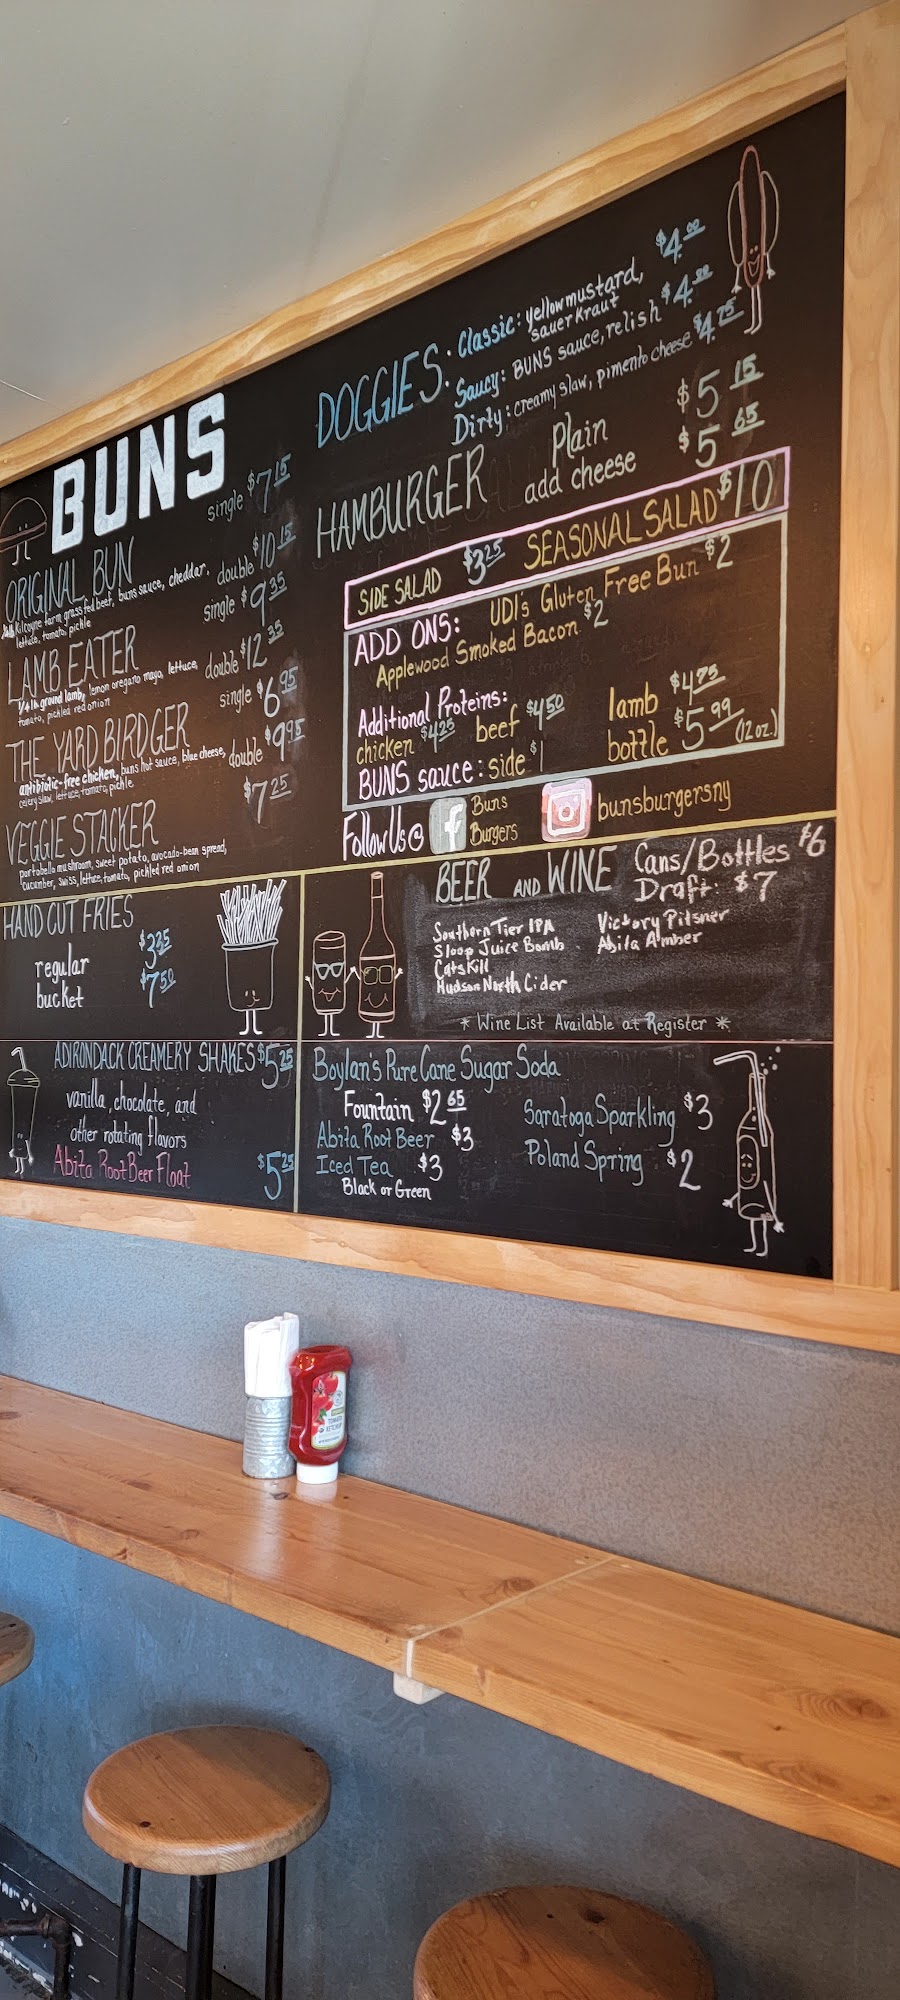 BUNS
single $7.15
ORIGINAL BUN
double $10.15
Kilcoyne farm grassfed beef, buns sauce, cheddar,
lettuce, tomato, pickle
single $9.35
LAMB EATER
double $12.35
1/4 lb ground lamb, lemon oregano mayo, lettuce,
tomato, pickled red onion
single $6.95
THE YARD BIRDGER
double $9.95
antibiotic-free chicken, buns hot sauce, blue cheese,
celery slaw, lettuce, tomato, pickle
$7.25
VEGGIE STACKER
portobello mushroom, sweet potato, avocado-bean spread,
cucumber, swiss, lettuce, tomato, pickled red onion
DOGGIES: Classic: yellow mustard, $4.00
sauerkraut
Saucy: BUNS sauce, relish $4.00
Dirty: creamy slaw, pimento cheese $4.75
HAMBURGER Plain $5.15
add cheese $5.65
SIDE SALAD $3.25 SEASONAL SALAD $10
ADD ONS: UDI's Gluten Free Bun $2
Applewood Smoked Bacon $2
Additional Proteins:
chicken $4.25 beef $4.50 lamb $4.75
BUNS sauce: side $1 bottle $5.99/(12oz.)
Follow Us @ f Buns
Burgers
bunsburgersny
HAND CUT FRIES
regular $3.25
bucket $7.50
BEER AND WINE Cans/Bottles $6
Draft: $7
Southern Tier IPA Victory Pilsner
Sloop Juice Bomb Abita Amber
Catskill
Hudson North Cider
* Wine List Available at Register *
ADIRONDACK CREAMERY SHAKES $5.25
vanilla, chocolate, and
other rotating flavors
Abita Root Beer Float $5.25
Boylan's Pure Cane Sugar Soda
Fountain $2.65 Saratoga Sparkling $3
Abita Root Beer $3 Poland Spring $2
Iced Tea $3
Black or Green
TOMATO
KETCHUP